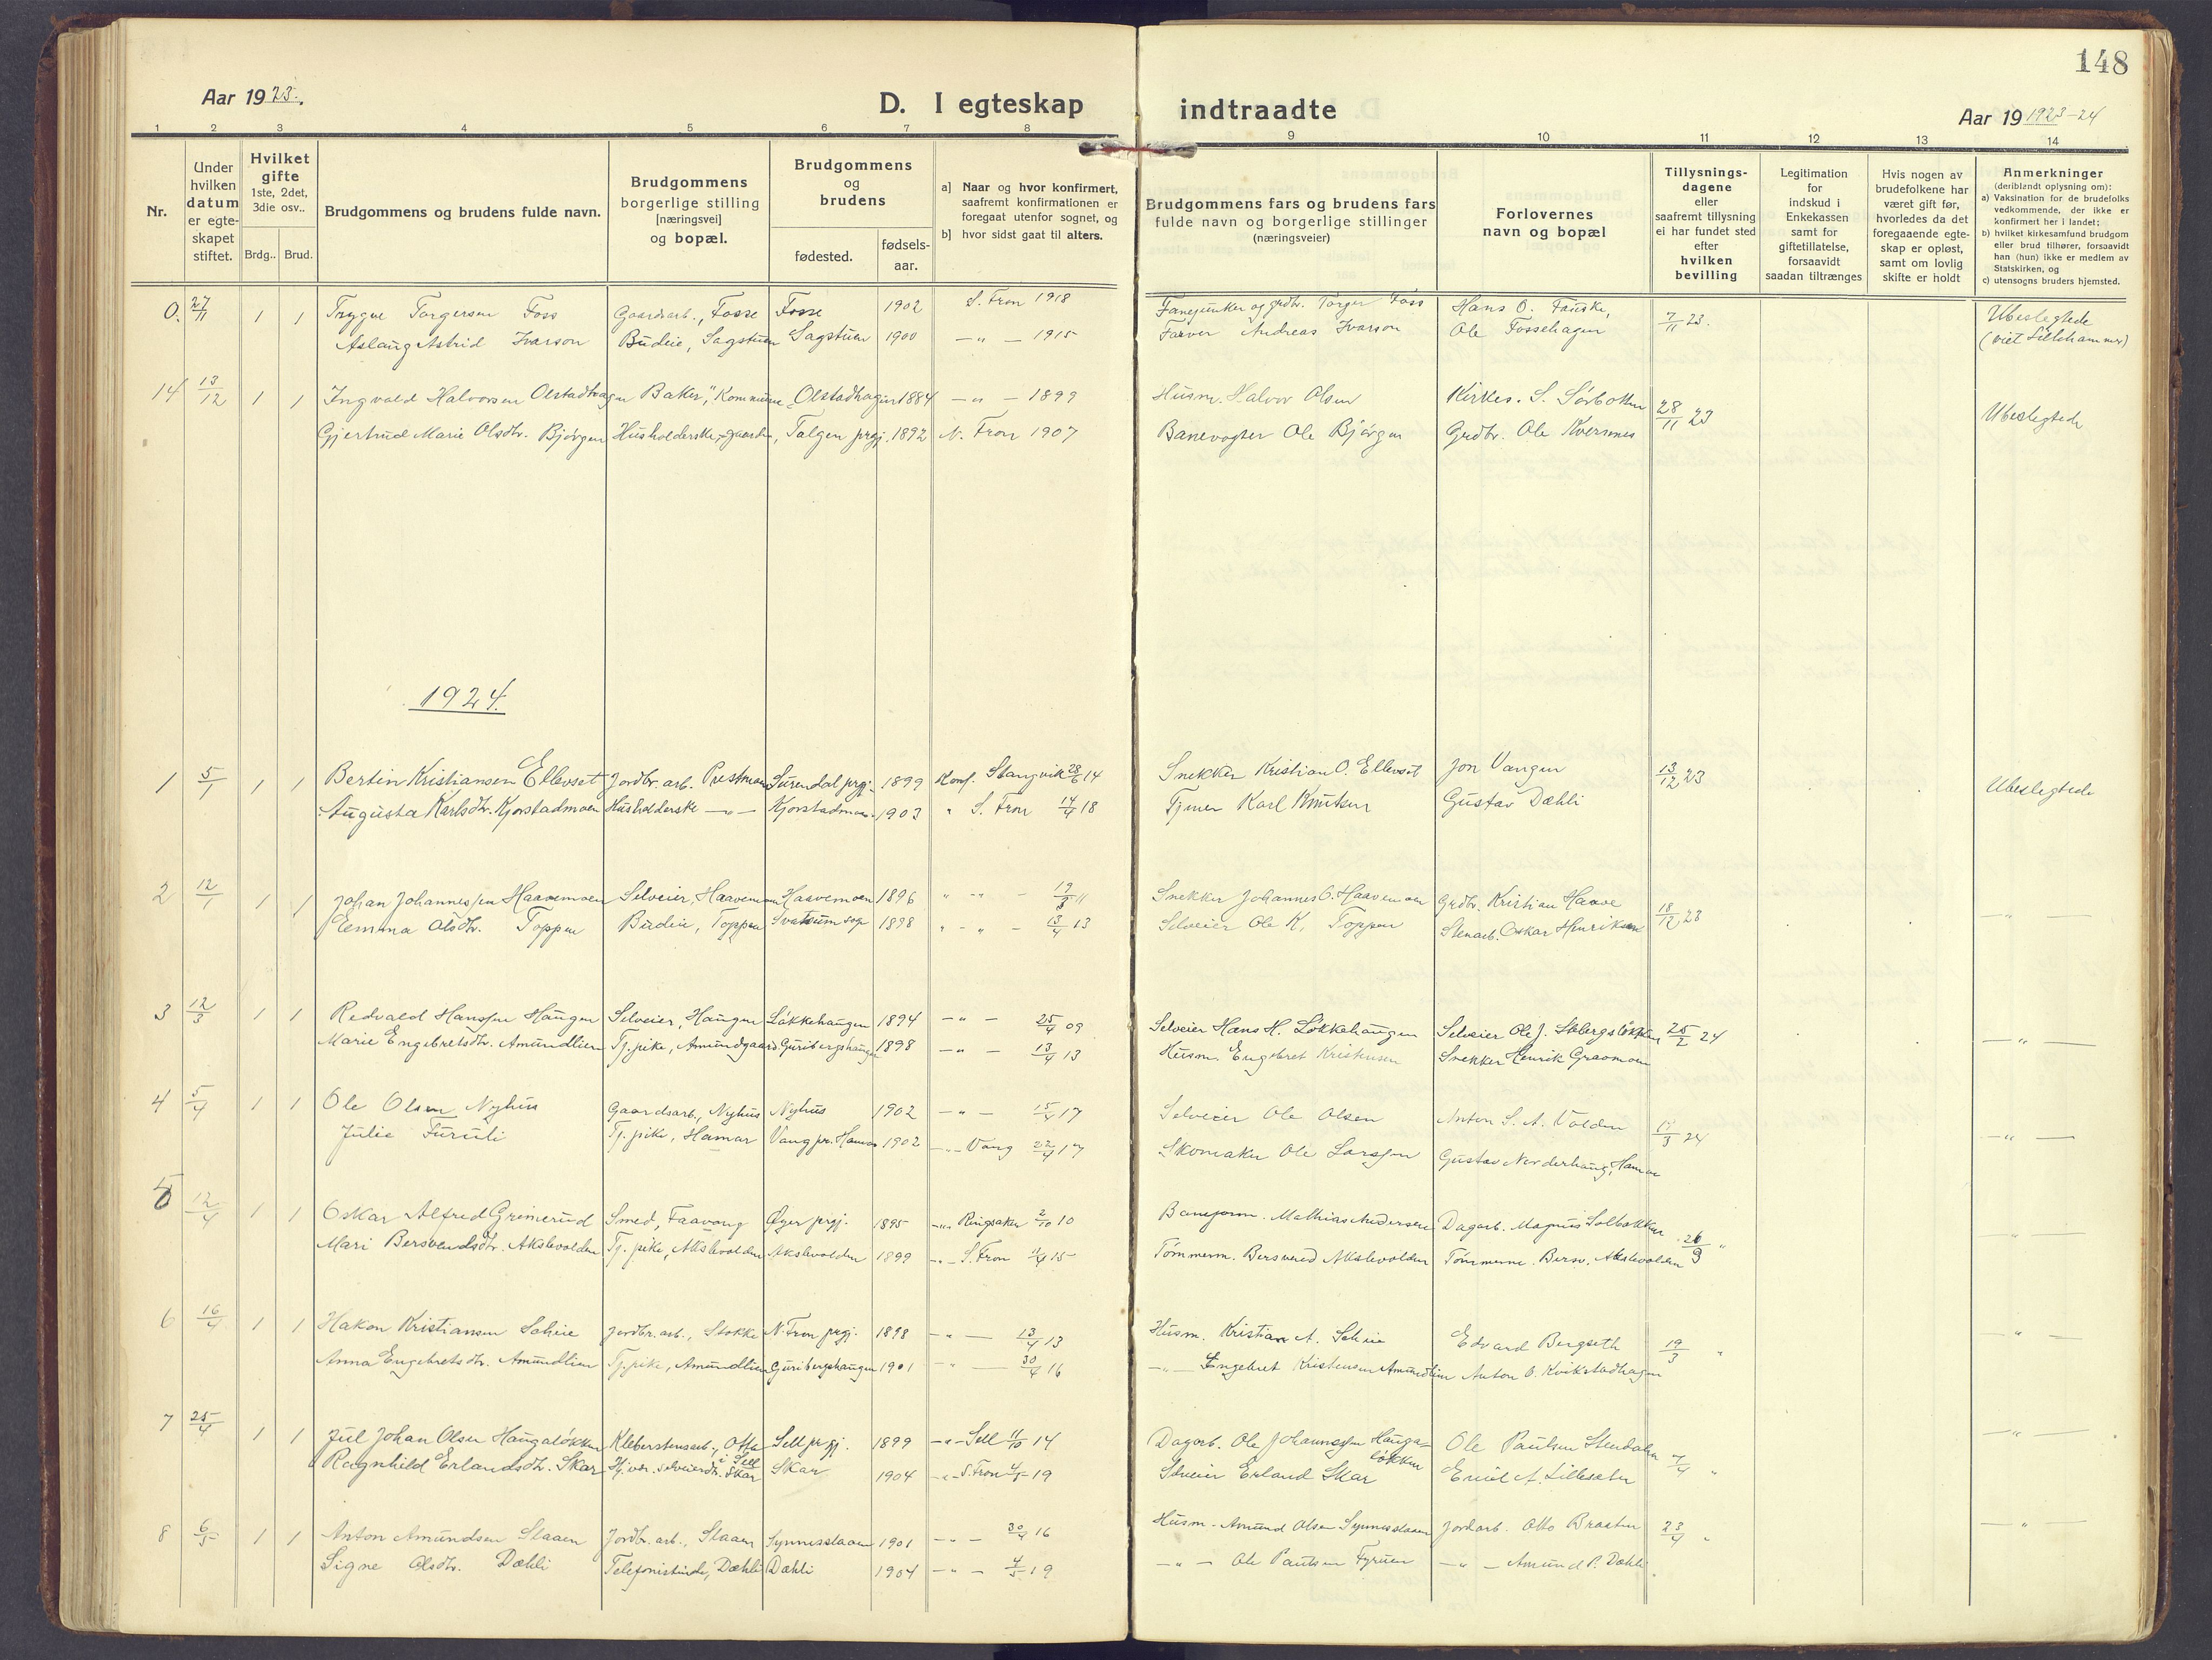 148
Aar 1923.
D. I egteskap indtraadte
Aar 19 1923-24
1 2 3 4 5 6 7 8 9 10 11 12 13 14
Nr.
Under hvilken datum er egte-skapet stiftet.
Hvilket gifte 1ste, 2det, 3die osv..
Brdg.. Brud.
Brudgommens og brudens fulde navn.
Brudgommens borgerlige stilling [næringsvei] og bopæl.
Brudgommens og brudens
fødested. fødsels-aar.
a] Naar og hvor konfirmert, saafremt konfirmationen er foregaat utenfor sognet, og
b] hvor sidst gaat til alters.
Brudgommens fars og brudens fars fulde navn og borgerlige stillinger (næringsveier)
Forlovernes navn og bopæl
Tillysnings-dagene eller saafremt tillysning ei har fundet sted efter hvilken bevilling
Legitimation for indskud i Enkekassen samt for giftetillatelse, forsaavidt saadan tiltrænges
Hvis nogen av brudefolkene har været gift før, hvorledes da det foregaaende egte-skap er opløst, samt om lovlig skifte er holdt
Anmerkninger (deriblandt oplysning om): a) Vaksination for de brudefolks vedkommende, der ikke er konfirmert her i landet; b) hvilket kirkesamfund brudgom eller brud tilhører, forsaavidt han (hun) ikke er medlem av Statskirken, og c) utensogns bruders hjemsted.
0. 27/11 1 1 Trygve Torgersen Foss Gaardsarb., Fosse Fosse 1902 S. Fron 1918 Fanejunker og grdbr. Torger Foss Hans O. Fauske, 7/11 23. Ubeslegtede
Aslaug Astrid Ivarson Budeie, Sagstuen Sagstuen 1900 -"- 1915 Farver Andreas Ivarson Ole Fossehagen (viet Lillehammer)
14 13/12 1 1 Ingvald Halvorsen Olstadhagen Baker, "Kommune Olstadhagen 1884 -"- 1899 Husm. Halvor Olsen Kirkes. S. Sørbotten 28/11 23 Ubeslegtede
Gjertrud Marie Olsdtr. Bjørgen Husholderske, Tolgen prgj. 1892 N. Fron 1907 Banevogter Ole Bjørgen Grdbr. Ole Kvernnes
1924.
1 5/1 1 1 Bertin Kristiansen Ellevset Jordbr. arb. Prestmoen Surendal prgj. 1899 Konf. Stangvik 28/6 14 Snekker Kristian O. Ellevset Jon Vangen 13/12 23 Ubeslegtede
Augusta Karlsdtr. Kjorstadmoen Husholderske -"- Kjorstadmoen 1903 " S. Fron 14/4 18 Tjener Karl Knutsen Gustav Dæhli
2 12/1 1 1 Johan Johannessen Haavemoen Selveier, Haavemoen Haavemoen 1896 " -"- 19/3 11 Snekker Johannes O. Haavemoen Grdbr. Kristian Haave 18/12 23 -"-
Emma Olsdtr. Toppen Budeie, Toppen Svatsum sogn 1898 " -"- 13/4 13 Selveier Ole K. Toppen Stenarb. Oskar Henriksen
3 12/3 1 1 Redvald Hanssen Haugen Selveier, Haugen Løkkehaugen 1894 -"- 25/4 09 Selveier Hans H. Løkkehaugen Selveier Ole J. Stebergsløkken 25/2 24 -"-
Marie Engebretsdtr. Amundlien Tj. pike, Amundgaard Guribergshaugen 1898 -"- 13/4 13 Husm. Engebret Kristensen Snekker Henrik Graamoen
4 5/4 1 1 Ole Olsen Nyhus Gaardsarb., Nyhus Nyhus 1902 -"- 15/4 17 Selveier Ole Olsen Anton S. A. Volden 24 -"-
Julie Furuli Tj. pike, Hamar Vang pr. Hamar 1902 -"- Vang 22/4 17 Skomaker Ole Larssen Gustav Norderhaug, Hamar
5 12/4 1 1 Oskar Alfred Grimerud Smed, Faavang Øyer prgj. 1895 -"- Ringsaker 2/10 10 Baneform. Mathias Andersen Dagarb. Magnus Solbakken 26/3 " -"-
Mari Bersvendsdtr. Akslevolden Tj. pike, Akslevolden Akslevolden 1899 -"- S. Fron 11/4 15 Tømmerm. Bersvend Akslevolden Tømmerm. Bersv. Akslevolden
6 16/4 1 1 Hakon Kristiansen Scheie Jordbr. arb., Stokke N. Fron prgj. 1898 -"- 13/4 13 Husm. Kristian A. Scheie Edvard Bergseth 19/3 " -"-
Anna Engebretsdtr. Amundlien Tj. pike, Amundlien Guribergshaugen 1901 -"- 30/4 16 -"- Engebret Kristensen Amundlien Anton O. Kvikstadhagen
7 25/4 1 1 Jul Johan Olsen Haugaløkken Kleberstensarb., Otta i Sell Sell prgj. 1899 -"- Sell 11/10 14 Dagarb. Ole Johannessen Haugaløkken Ole Paulsen Stendalen 7/4 " -"-
Ragnhild Erlandsdtr. Skar Hj.vær. selveierdtr. Skar Skar 1904 -"- S. Fron 4/5 19 Selveier Erland Skar Emil A. Lillesæter
8 6/5 1 1 Anton Amundsen Slaaen Jordbr. arb., Slaaen Synnesslaaen 1901 -"- 30/4 16 Husm. Amund Olsen Synnesslaaen Jordarb. Otto Braaten 23/4 " -"-
Signe Olsdtr. Dæhli Telefonistinde, Dæhli Dæhli 1904 -"- 4/5 19 -"- Ole Paulsen Fyruen -"- Amund P. Dæhli